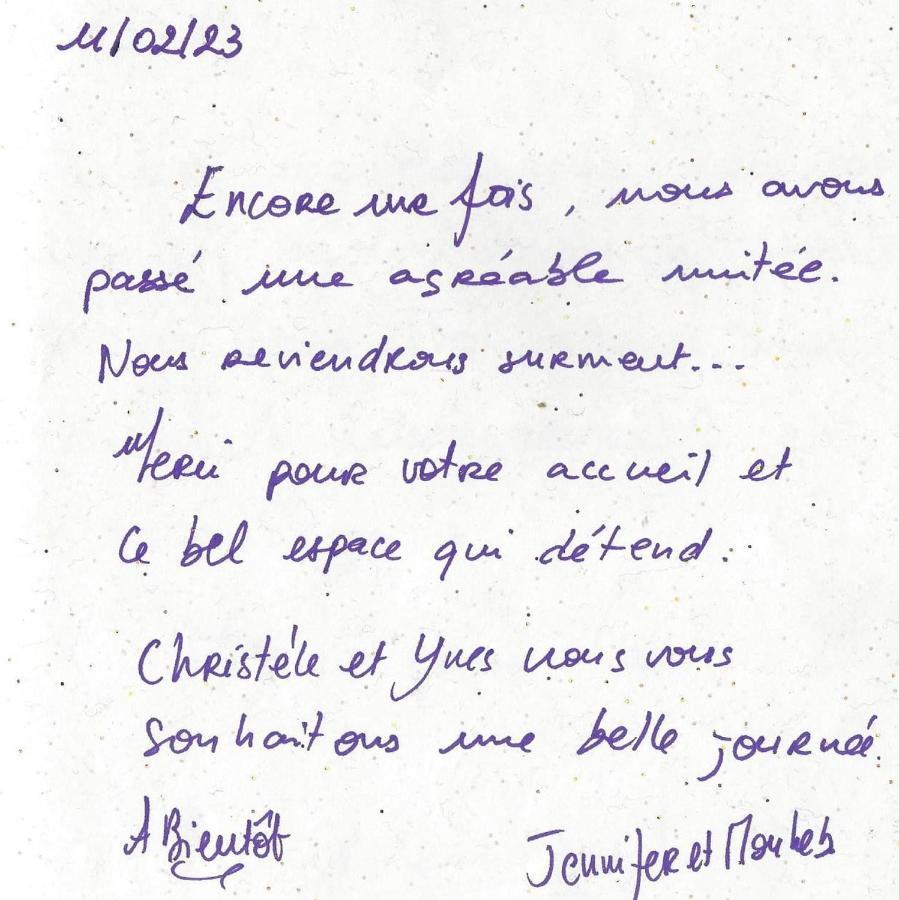 11/02/23
Encore une fois, nous avons
passé une agréable nuitée.
Nous reviendrons surment...
Merci pour votre accueil et
Ce bel espace qui détend.
Christéle et Yves nous vous
souhaitons une belle journée.
A Bientôt
Jennifer et